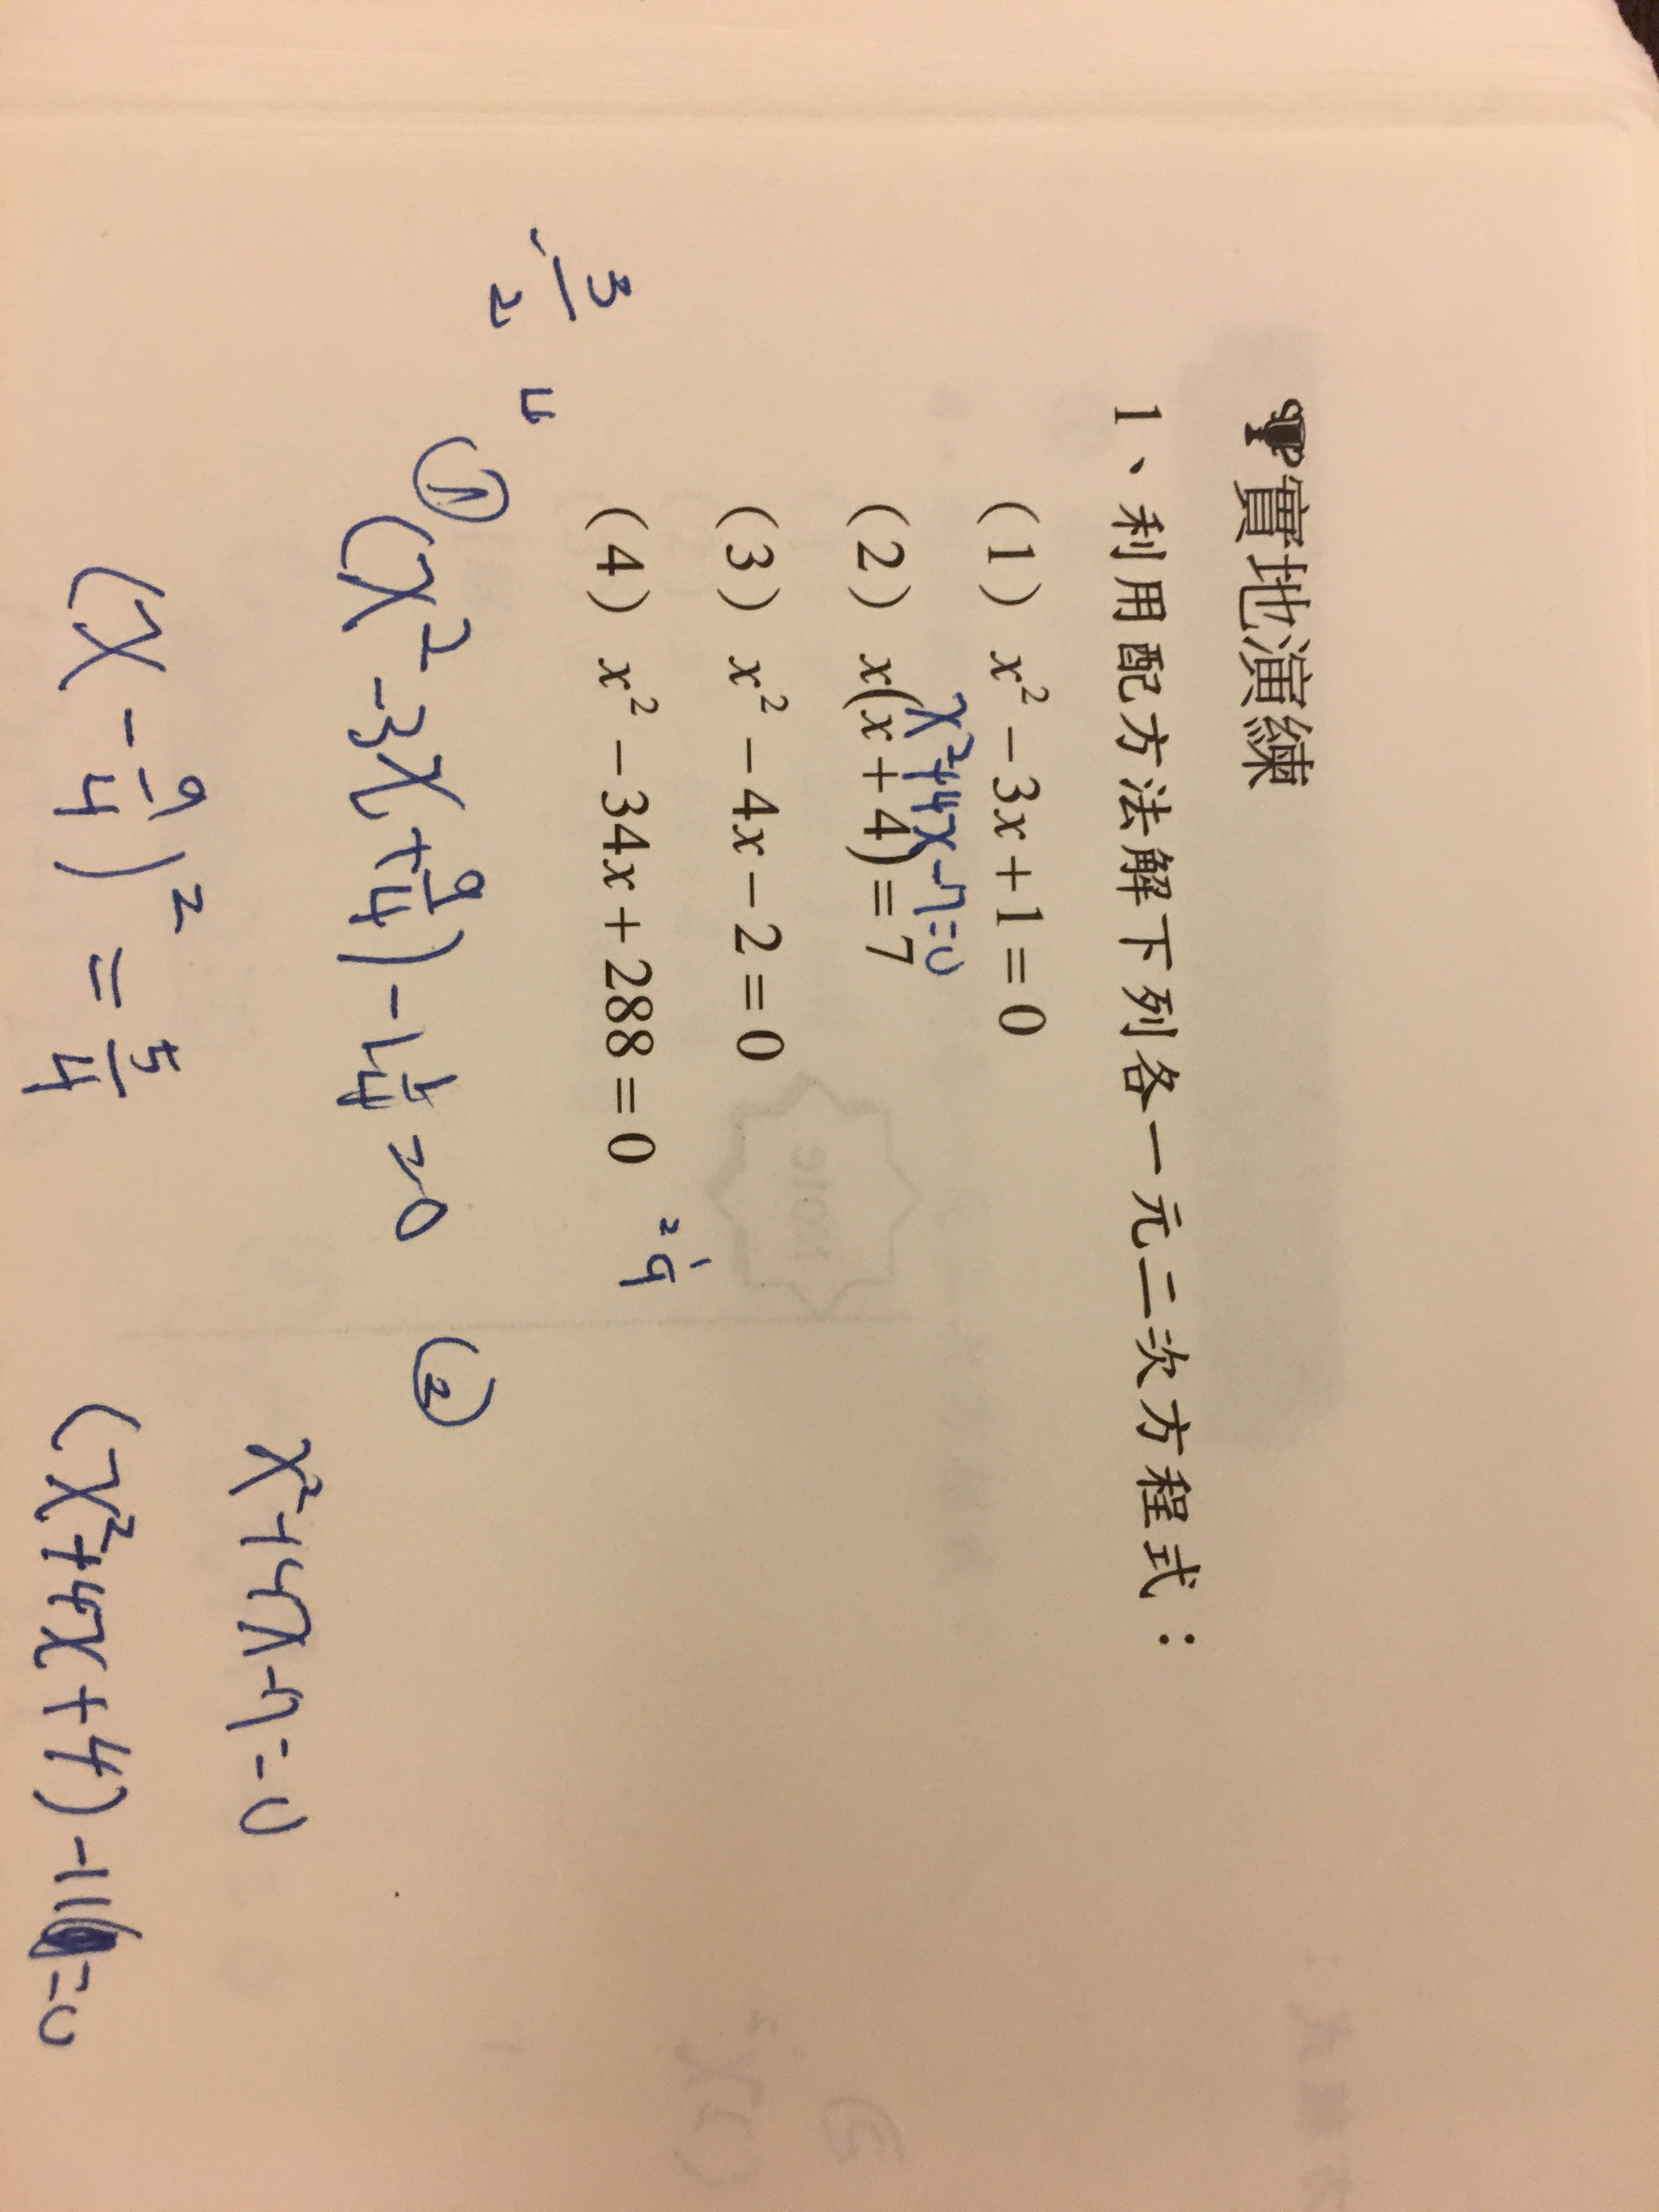 實地演練
1、利用配方法解下列各一元二次方程式：
(1) x² － 3x + 1 = 0
x²+4x-7=0
(2) x(x + 4) = 7
(3) x² － 4x － 2 = 0
(4) x² － 34x + 288 = 0
3/2
4
①
(x²-3x+9/4)-1 1/4=0
(x-9/4)²=5/4
②
x²+4x-7=0
(x²+4x+4)-11=0